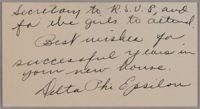 Secretary to R.S.V.P. and
for the girls to attend.
Best wishes for
successful years in
your new house.
Delta Phi Epsilon